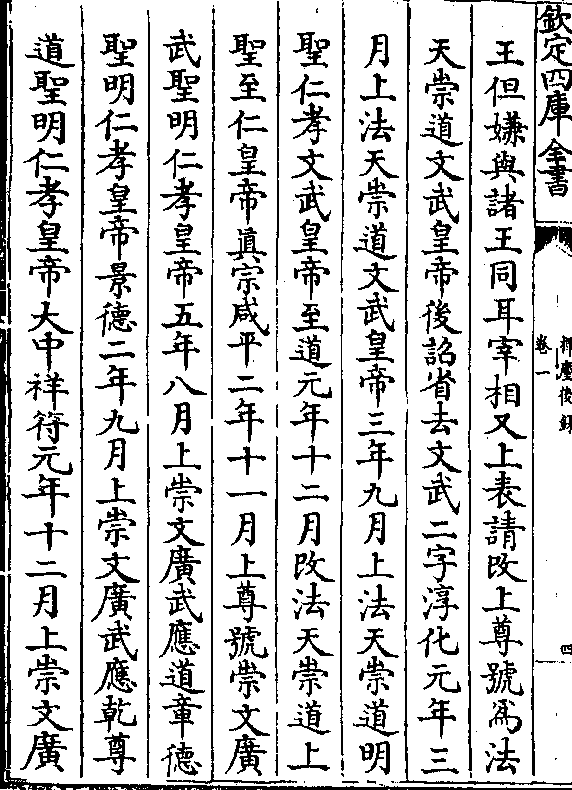 欽定四庫全書
卷一
四
王但嫌與諸王同耳宰相又上表請改上尊號爲法
天崇道文武皇帝後詔省去文武二字淳化元年三
月上法天崇道文武皇帝三年九月上法天崇道明
聖仁孝文武皇帝至道元年十二月改法天崇道上
聖至仁皇帝眞宗咸平二年十一月上尊號崇文廣
武聖明仁孝皇帝五年八月上崇文廣武應道章德
聖明仁孝皇帝景德二年九月上崇文廣武應乾尊
道聖明仁孝皇帝大中祥符元年十二月上崇文廣